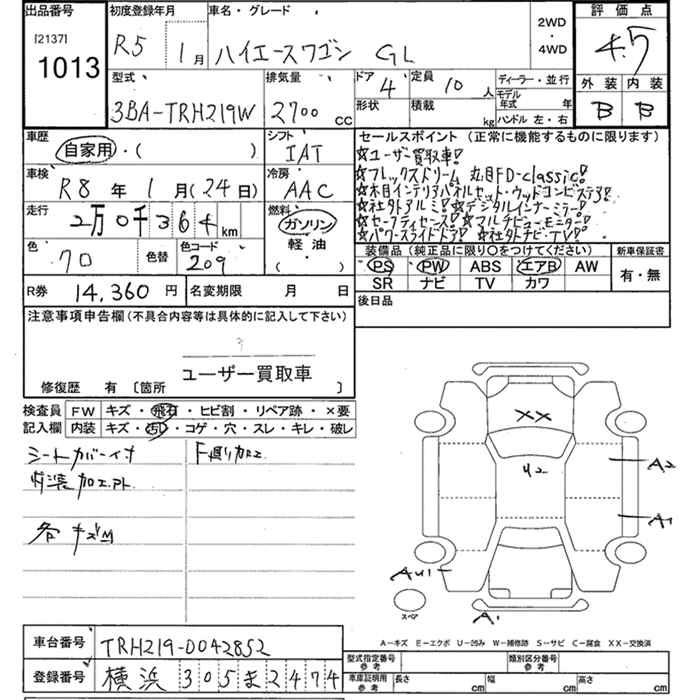 出品番号 初度登録年月 車名・グレード 評価点
[2137] R5 1月 ハイエースワゴン GL 2WD・4WD 4.5
1013 外装 内装
型式 排気量 ドア 定員 ディーラー・並行 B B
3BA-TRH219W 2700 CC 4 10人 モデル年式 年
形状 積載 kg ハンドル 左・右
車歴 シフト セールスポイント (正常に機能するものに限ります)
自家用・( ) IAT ☆ユーザー買取車!
車検 冷房 ☆フレックスドリーム 丸目FD-classic!
R8年1月(24日) AAC ☆木目インテリアパネルセット・ウッドコンビステア!
走行 燃料 ☆社外アルミ! ☆デジタルインナーミラー!
2万0千364km ガソリン ☆セーフティセンス! ☆マルチビューモニター!
軽油 ☆パワースライドドア! ☆社外ナビ・TV!
色 色替 色コード ( ) 装備品(純正品に限り○をつけてください) 新車保証書
70 209 PS PW ABS エアB AW 有・無
SR ナビ TV カワ
R券 14,360円 名変期限 月 日 後日品
注意事項申告欄(不具合内容等は具体的に記入して下さい)
ユーザー買取車
修復歴 有〔箇所 〕
検査員 FW キズ・飛石・ヒビ割・リペア跡・×要
記入欄 内装 キズ・汚レ・コゲ・穴・スレ・キレ・破レ
シートカバーイタ
内装加工.Pt.
各キズM
XX
U2
A2
A1
AU1
A1
スペア
A-キズ E-エクボ U-凹み W-補修跡 S-サビ C-腐食 XX-交換済
車台番号 TRH219-0042852 型式指定番号 参考 類別区分番号 参考
登録番号 横浜 305ま2474 車庫証明用 参考 長さ cm 幅 cm 高さ cm